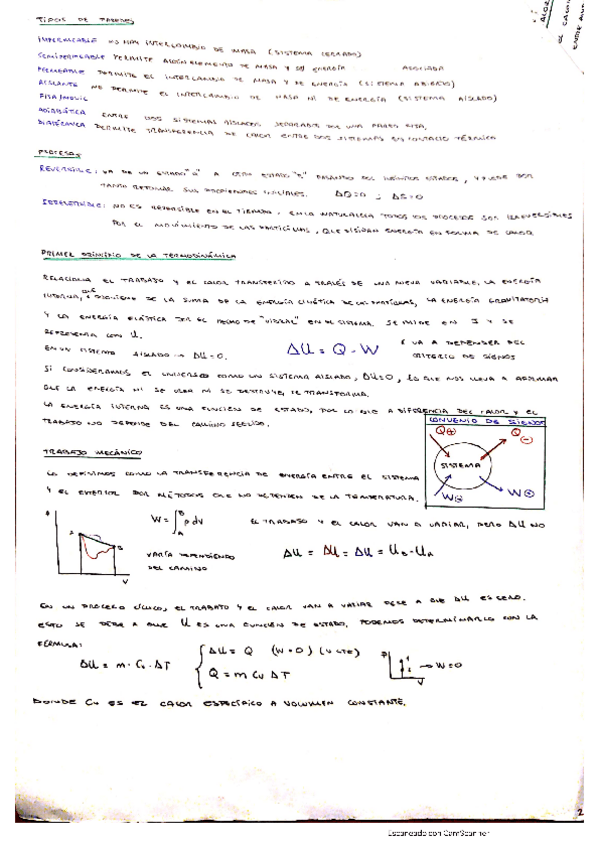 TIPOS DE PAREDES
IMPERMEABLE NO HAY INTERCAMBIO DE MASA (SISTEMA CERRADO)
SEMIPERMEABLE PERMITE ALGÚN ELEMENTO DE MASA Y SU ENERGÍA ASOCIADA
PERMEABLE PERMITE EL INTERCAMBIO DE MASA Y DE ENERGÍA (SISTEMA ABIERTO)
AISLANTE NO PERMITE EL INTERCAMBIO DE MASA NI DE ENERGÍA (SISTEMA AISLADO)
FIJA/MÓVIL
ADIABÁTICA ENTRE DOS SISTEMAS AISLADOS SEPARADOS POR UNA PARED FIJA.
DIATÉRMANA PERMITE TRANSFERENCIA DE CALOR ENTRE DOS SISTEMAS EN CONTACTO TÉRMICO
PROCESOS
REVERSIBLE: VA DE UN ESTADO "A" A OTRO ESTADO "B" PASANDO POR INFINITOS ESTADOS, Y PUEDE POR
TANTO RETOMAR SUS PROPIEDADES INICIALES. ΔQ=0 ; ΔS=0
IRREVERSIBLE: NO ES REVERSIBLE EN EL TIEMPO. EN LA NATURALEZA TODOS LOS PROCESOS SON IRREVERSIBLES
POR EL MOVIMIENTO DE LAS PARTÍCULAS, QUE DISIPAN ENERGÍA EN FORMA DE CALOR
PRIMER PRINCIPIO DE LA TERMODINÁMICA
RELACIONA EL TRABAJO Y EL CALOR TRANSFERIDO A TRAVÉS DE UNA NUEVA VARIABLE, LA ENERGÍA
INTERNA, QUE PROVIENE DE LA SUMA DE LA ENERGÍA CINÉTICA DE LAS PARTÍCULAS, LA ENERGÍA GRAVITATORIA
Y LA ENERGÍA ELÁSTICA POR EL HECHO DE "VIBRAR" EN EL SISTEMA. SE MIDE EN J Y SE
REPRESENTA CON U.
EN UN SISTEMA AISLADO → ΔU=0. ΔU = Q - W VA A DEPENDER DEL
CRITERIO DE SIGNOS
SI CONSIDERAMOS EL UNIVERSO COMO UN SISTEMA AISLADO, ΔU=0, LO QUE NOS LLEVA A AFIRMAR
QUE LA ENERGÍA NI SE CREA NI SE DESTRUYE, SE TRANSFORMA.
LA ENERGÍA INTERNA ES UNA FUNCIÓN DE ESTADO, POR LO QUE A DIFERENCIA DEL CALOR Y EL
TRABAJO NO DEPENDE DEL CAMINO SEGUIDO.
CONVENIO DE SIGNOS
Q⊕ Q⊖
SISTEMA
W⊖ W⊕
TRABAJO MECÁNICO
LO DEFINIMOS COMO LA TRANSFERENCIA DE ENERGÍA ENTRE EL SISTEMA
Y EL EXTERIOR POR MÉTODOS QUE NO DEPENDEN DE LA TEMPERATURA.
P A B V
W = ∫ₐᴮ p dV EL TRABAJO Y EL CALOR VAN A VARIAR, PERO ΔU NO
VARÍA DEPENDIENDO
DEL CAMINO
ΔU = ΔU = ΔU = U_B - U_A
EN UN PROCESO CÍCLICO, EL TRABAJO Y EL CALOR VAN A VARIAR PESE A QUE ΔU ES CERO.
ESTO SE DEBE A QUE U ES UNA FUNCIÓN DE ESTADO. PODEMOS DETERMINARLO CON LA
FÓRMULA:
ΔU = m · Cv · ΔT
ΔU = Q (W=0) (V CTE)
Q = m Cv ΔT
P V → W=0
DONDE Cv ES EL CALOR ESPECÍFICO A VOLUMEN CONSTANTE.
2
Escaneado con CamScanner